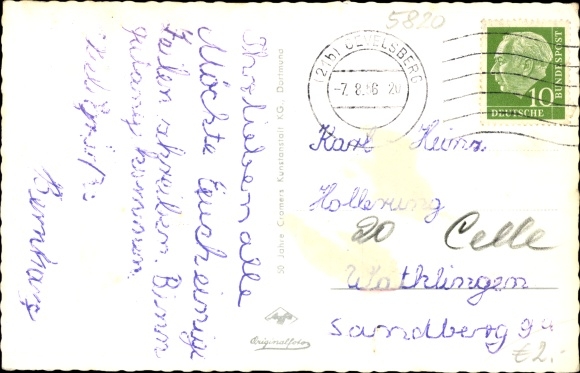 5820
(21b) GEVELSBERG
-7.8.56 20
10
DEUTSCHE
BUNDESPOST
Ihr lieben alle
Möchte Euch einige
Zeilen schreiben Bin
gut angekommen
Viel Grüße
50 Jahre Cramers Kunstanstalt KG. Dortmund
Agfa
Originalfoto
Karl Heinz
Hollerung
20 Celle
Wathlingen
Sandberg 9a
€2.-